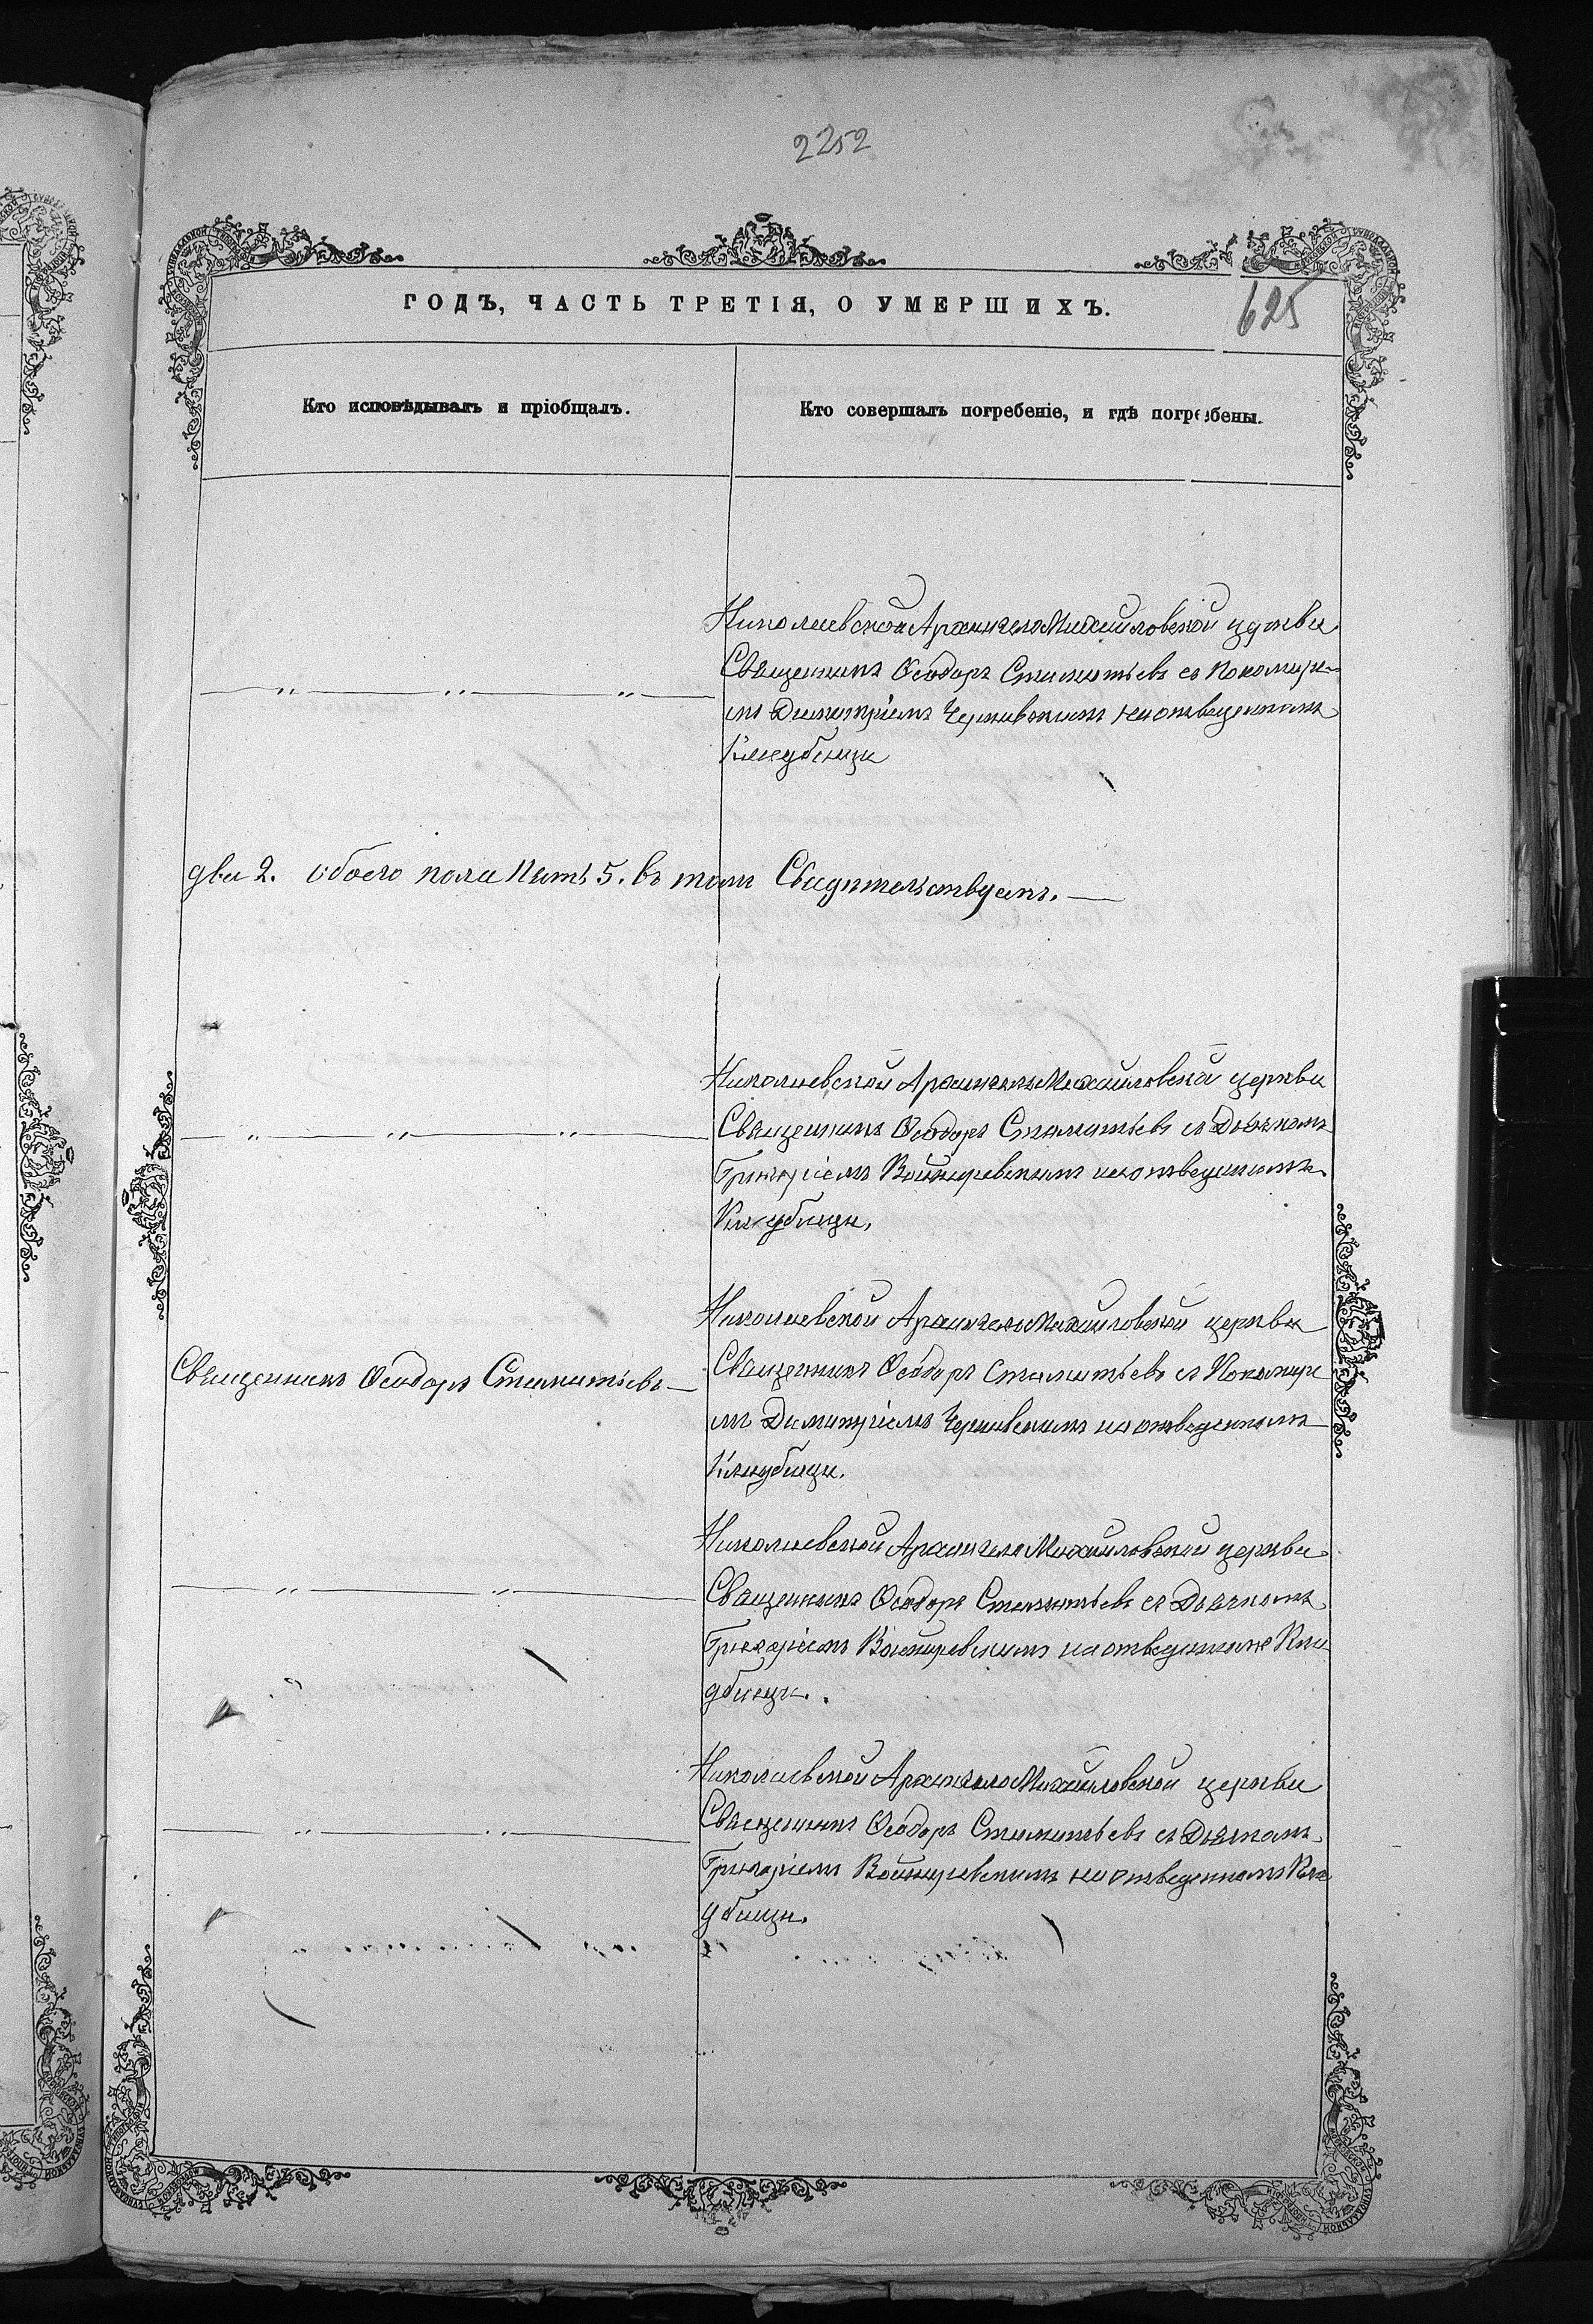 2252
ГОДЪ, ЧАСТЬ ТРЕТІЯ, О УМЕРШИХЪ.
625
Кто исповѣдывалъ и пріобщалъ.
Кто совершалъ погребеніе, и гдѣ погребены.
Николаевской Архангело Михайловской церкви
Священникъ Ѳеодоръ Стаматьевъ съ Пономаре
мъ Димитріемъ Чернявскимъ на отведенномъ
Кладбищи
два 2. обоего пола пять 5. въ томъ Свидѣтельствуемъ.
Николаевской Архангело Михайловской церкви
Священникъ Ѳеодоръ Стаматьевъ съ Дьячкомъ
Григоріемъ на отведенномъ
Кладбищи.
Николаевской Архангело Михайловской церкви
Священникъ Ѳеодоръ Стаматьевъ
Священникъ Ѳеодоръ Стаматьевъ съ Пономаре
мъ Димитріемъ Чернявскимъ на отведенномъ
Кладбищи.
Николаевской Архангело Михайловской церкви
Священникъ Ѳеодоръ Стаматьевъ съ Дьячкомъ
Григоріемъ на отведенномъ Кла
дбищи.
Николаевской Архангело Михайловской церкви
Священникъ Ѳеодоръ Стаматьевъ съ Дьячкомъ
Григоріемъ на отведенномъ Кла
дбищи.